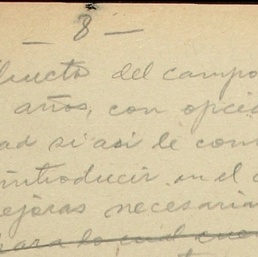 — 8 —
ducto del campo
años, con opció
ad si asi le con
introducir en el
ejoras necesaria
para lo cual